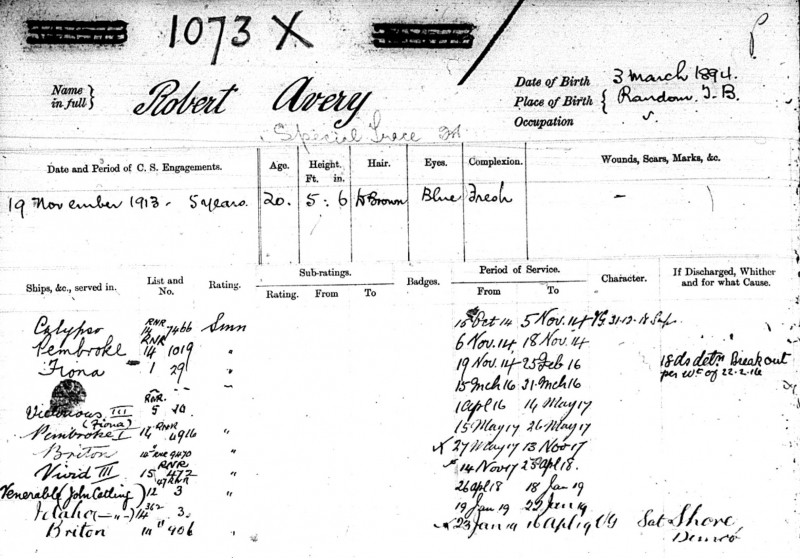 1073 X
Name in full } Robert Avery
Date of Birth 3 March 1894.
Place of Birth { Random. T. B.
Occupation
Special
Date and Period of C. S. Engagements. Age. Height. Ft. in. Hair. Eyes. Complexion. Wounds, Scars, Marks, &c.
19 November 1913 - 5 years. 20. 5 : 6 D Brown Blue Fresh –
Ships, &c., served in. List and No. Rating. Sub-ratings. Rating. From To Badges. Period of Service. From To Character. If Discharged, Whither and for what Cause.
Calypso RNR 14 7466 Smn 15 Oct 14 5 Nov. 14 VG 31-12-14
Pembroke RNR 14 1019 " 6 Nov. 14 18 Nov. 14
Fiona 1 29 " 19 Nov. 14 25 Feb 16 18 ds detn Break out
per Wt of 22-2-16
15 Mch 16 31 Mch 16
Victorious III RNR 5 1 Apl 16 14 May 17
(Fiona)
Pembroke I RNR 14 4916 " 15 May 17 26 May 17
Briton RNR 9470 " 27 May 17 13 Nov 17
Vivid III RNR 15 472 " 14 Nov 17 25 Apl 18.
Venerable (John Catling) 12 3 " 26 Apl 18 18 Jan 19
Idaho (— " —) 14 3. 19 Jan 19 22 Jan 19
Briton 406 23 Jan 19 16 Apl 19 VG Sat Shore